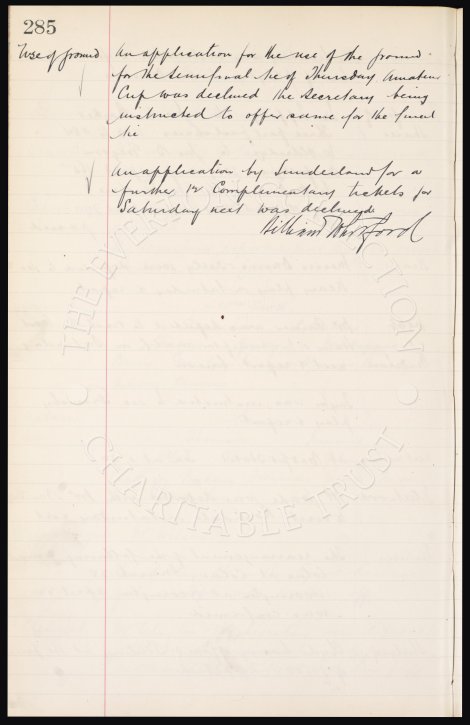 285
Use of ground
An application for the use of the ground
for the semifinal tie of Thursday Amateur
Cup was declined the Secretary being
instructed to offer same for the final
tie
An application by Sunderland for a
further 12 Complimentary tickets for
Saturday next was declined
William
THE EVERTON COLLECTION
CHARITABLE TRUST